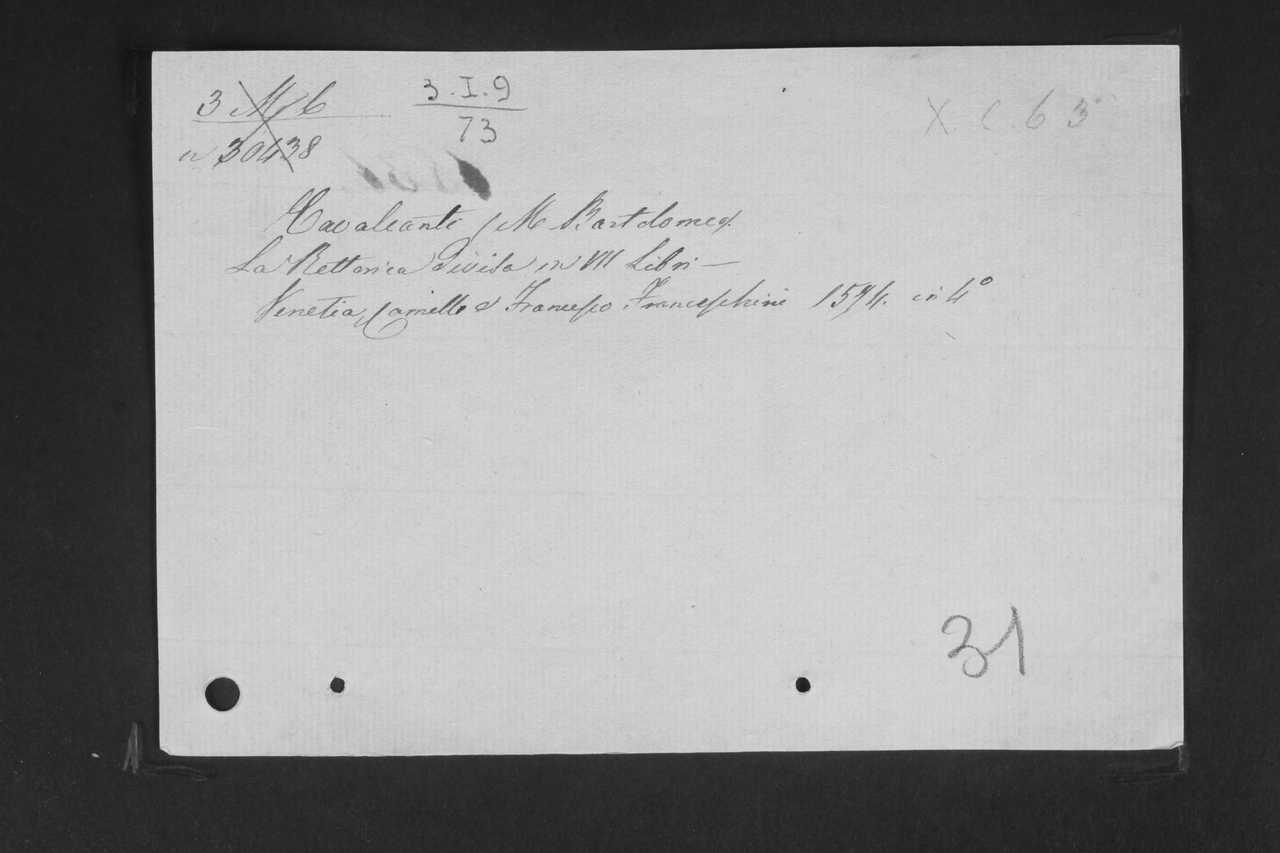 3 M 6
3.I.9
X. C. 63
n 30438
73
Cavalcanti (M. Bartolomeo)
La Rettorica Divisa in VII Libri —
Venetia, Camillo & Francesco Franceschini 1574. in 4°
31